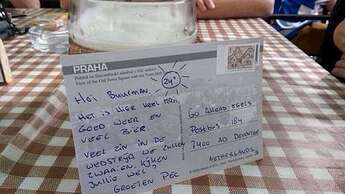 PRAHA
View of the Old Town Square with the Town Hall
24°
Hoi Buurman,
Het is hier heel mooi
Goed weer en
veel bier.
Veel zin in de
wedstrijd we zullen
zwaaien. Kijken
jullie wel
Groeten PEC
Go Ahead Eagles
Postbus 184
7400 AD Deventer
Netherlands